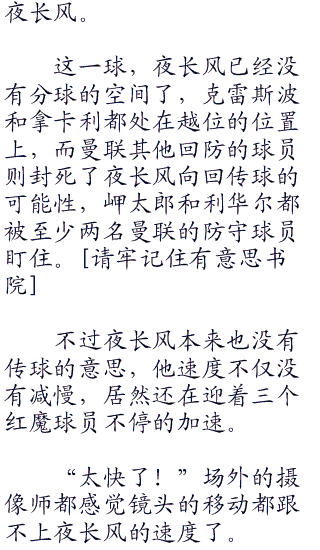 夜长风。
这一球，夜长风已经没
有分球的空间了，克雷斯波
和拿卡利都处在越位的位置
上，而曼联其他回防的球员
则封死了夜长风向回传球的
可能性，岬太郎和利华尔都
被至少两名曼联的防守球员
盯住。[请牢记住有意思书
院]
不过夜长风本来也没有
传球的意思，他速度不仅没
有减慢，居然还在迎着三个
红魔球员不停的加速。
“太快了！”场外的摄
像师都感觉镜头的移动都跟
不上夜长风的速度了。